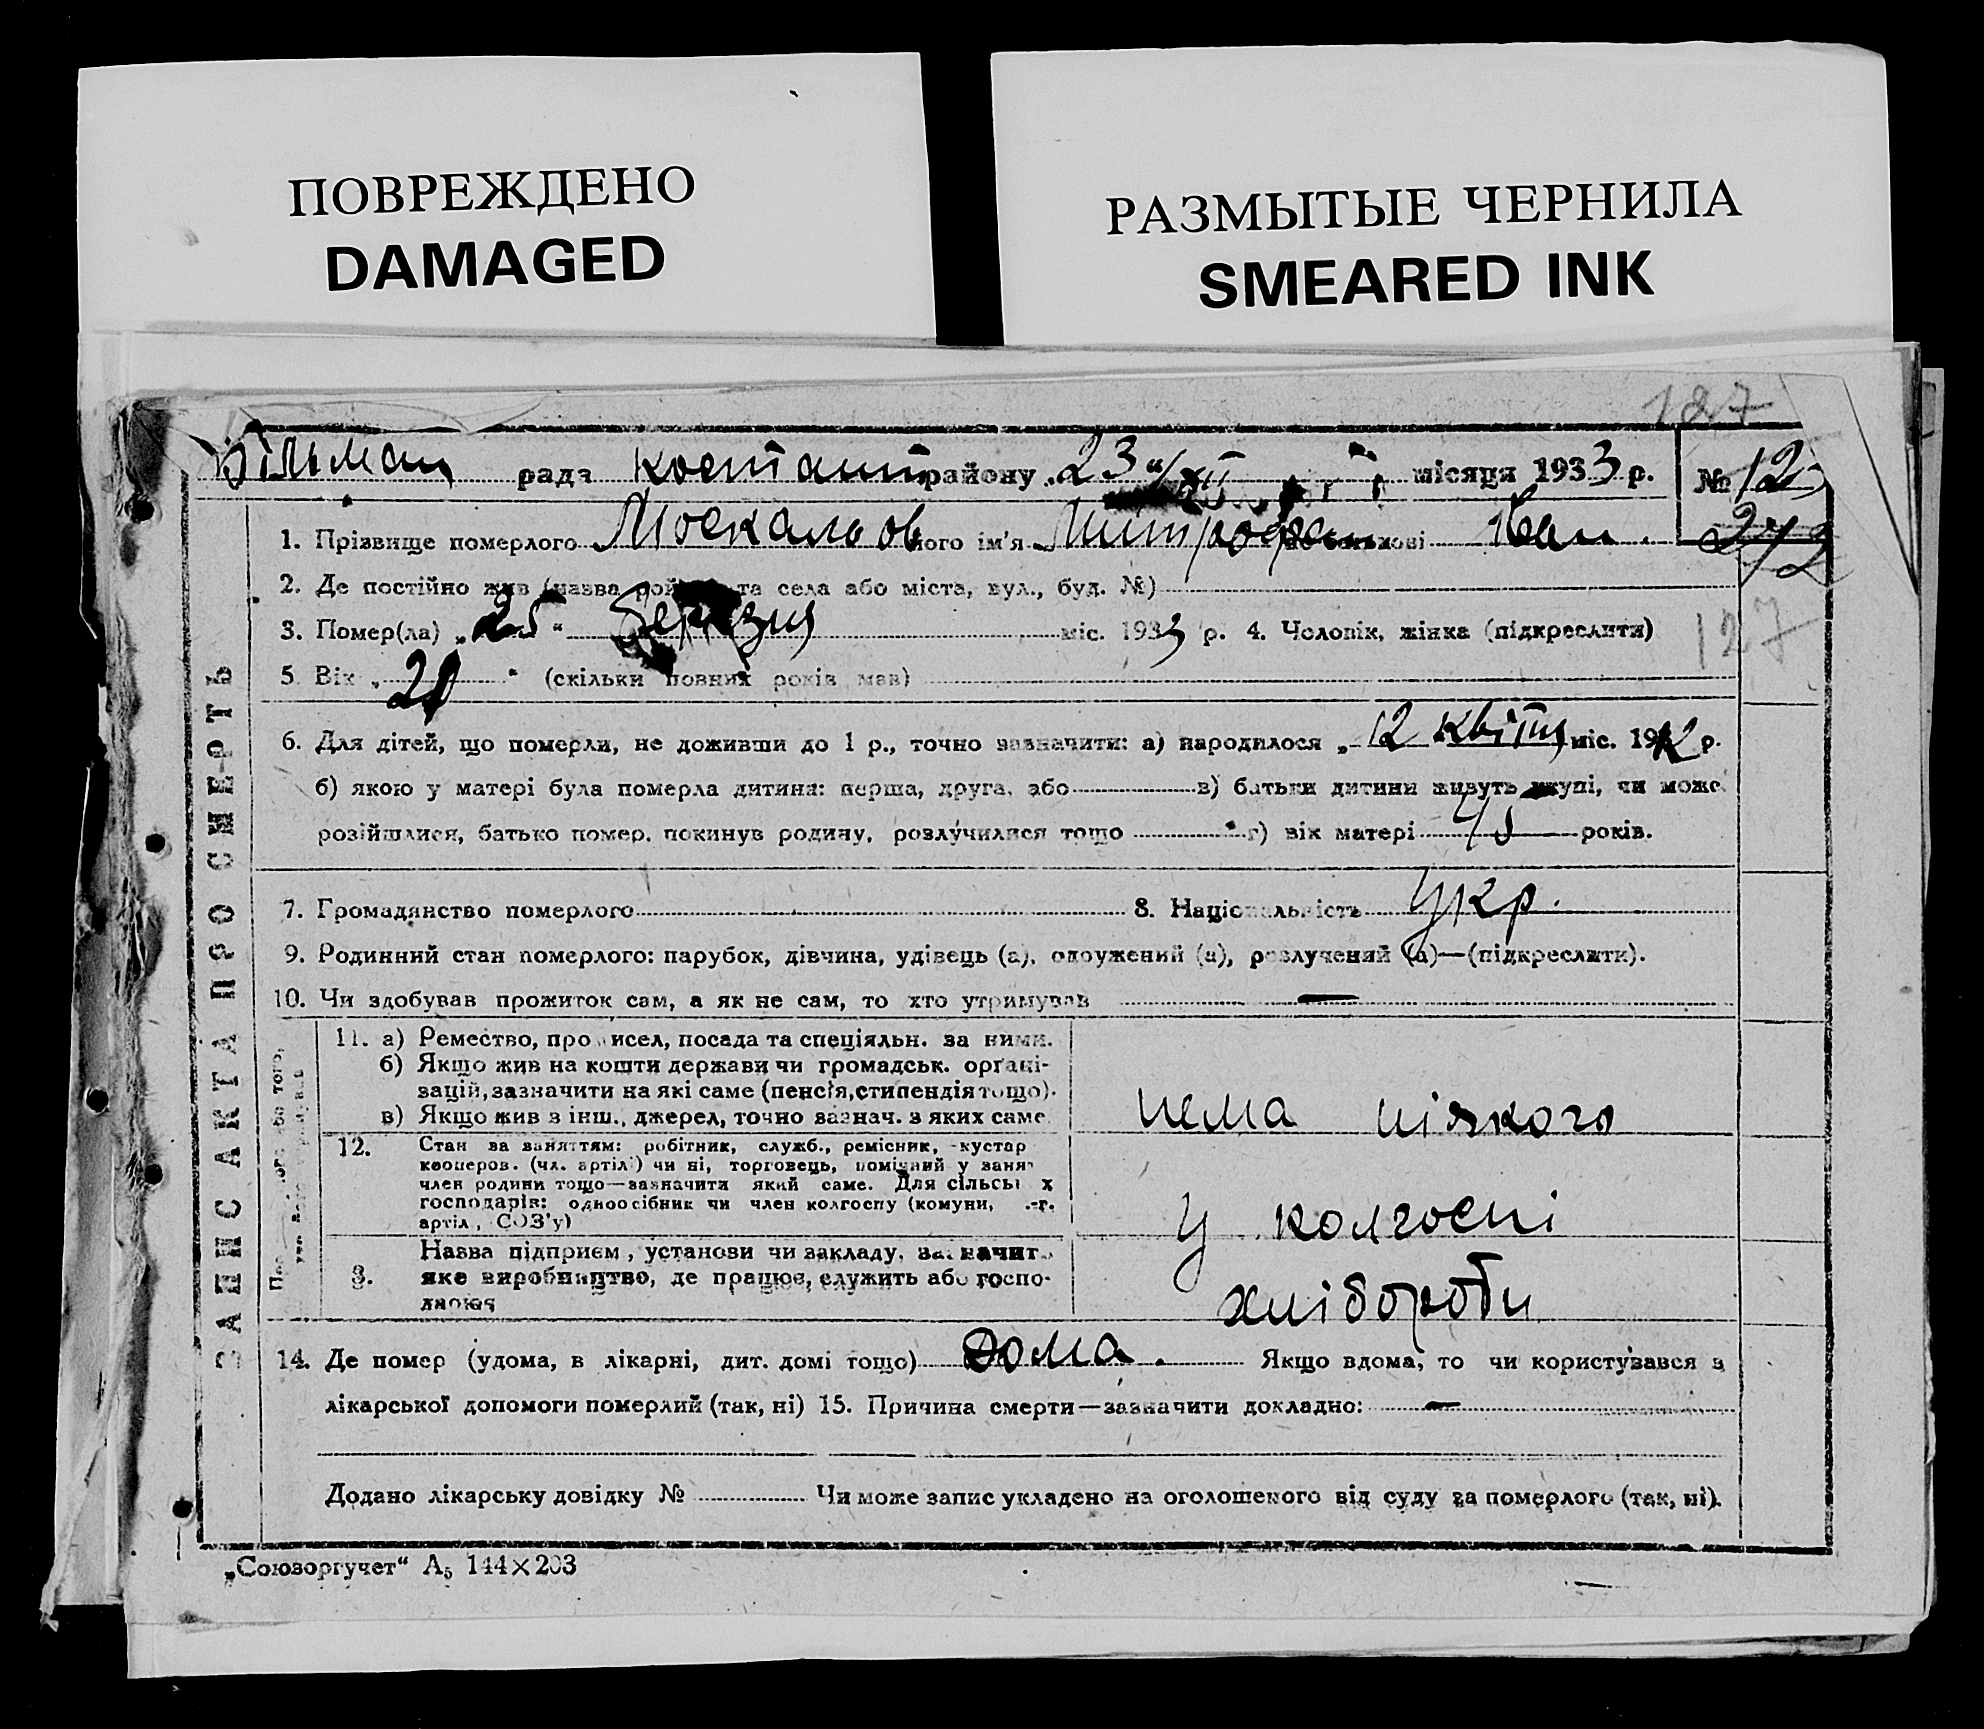 ПОВРЕЖДЕНО
DAMAGED
РАЗМЫТЫЕ ЧЕРНИЛА
SMEARED INK
187
рада района 23 місяця 1933 р. № 12
1. Прізвище померлого Москальов його ім'я Митрофан по батькові Іван.
2. Де постійно жив (назва та села або міста, вул., буд. №)
3. Помер(ла) „25“ березня міс. 1933 р. 4. Чоловік, жінка (підкреслити)
127
5. Вік „ (скільки повних років мав)
6. Для дітей, що померли, не доживши до 1 р., точно зазначити: а) народилося „12 квітня міс. 19 р.
б) якою у матері була померла дитина: перша, друга, або в) батьки дитини живуть вкупі, чи може
розійшлися, батько помер, покинув родину, розлучилися тощо г) вік матері років.
7. Громадянство померлого 8. Національність Укр.
9. Родинний стан померлого: парубок, дівчина, удівець (а), одружений (а), розлучений (а)—(підкреслити).
10. Чи здобував прожиток сам, а як не сам, то хто утримував —
ЗАПИС АКТА ПРО СМЕРТЬ
11. а) Ремество, промисел, посада та спеціяльн. за ними.
б) Якщо жив на кошти держави чи громадськ. органі-
зацій, зазначити на які саме (пенсія, стипендія тощо).
в) Якщо жив з інш., джерел, точно зазнач. з яких саме
нема ніякого
12. Стан за заняттям: робітник, служб., ремісник, кустар
кооперов. (чл. артіл) чи ні, торговець, помічний у занят
член родини тощо—зазначити який саме. Для сільськ х
господарів: одноосібник чи член колгоспу (комуни, с.-г.
артіл, СОЗ'у)
у колгоспі
Назва підприєм, установи чи закладу, зазначит
3. яке виробництво, де працює, служить або госпо-
дарює
хліборобти
14. Де помер (удома, в лікарні, дит. домі тощо) Дома. Якщо вдома, то чи користувався з
лікарської допомоги померлий (так, ні) 15. Причина смерти—зазначити докладно: —
Додано лікарську довідку № Чи може запис укладено на оголошеного від суду за померлого (так, ні).
„Союзоргучет“ А5 144×203